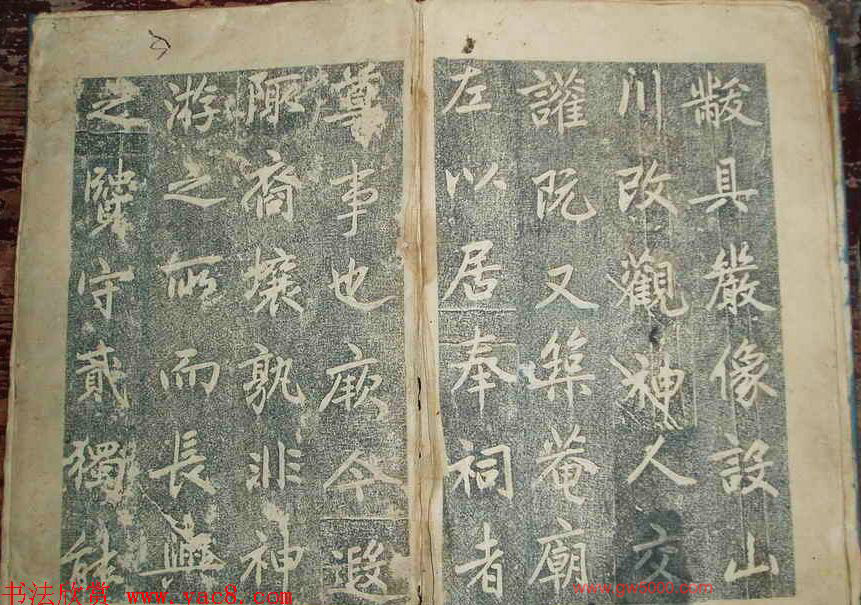 黻具嚴像設山
川改觀神人交
讙既又築菴廟
左以居奉祠者
尊事也厥今遐
陬裔壤孰非神
游之所而長興
之賢守貳獨能
书法欣赏 www.yac8.com
www.gw5000.com